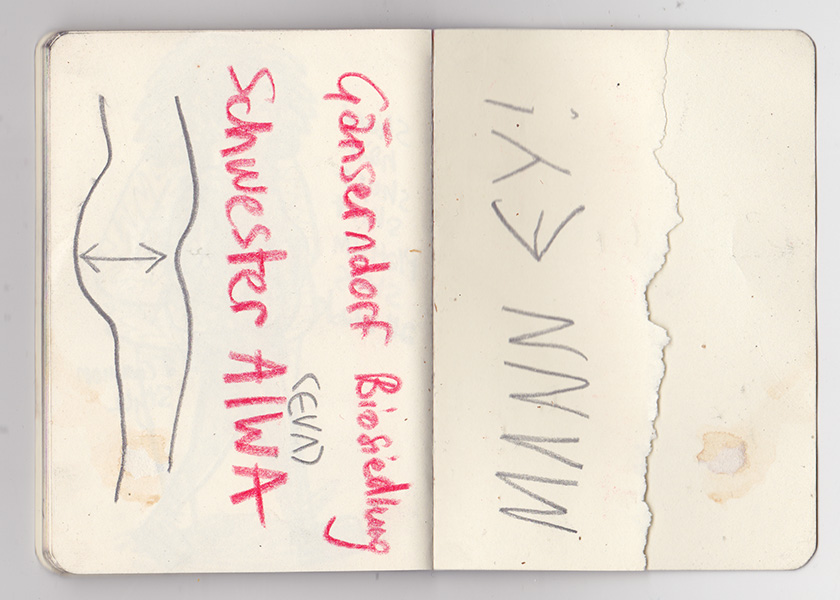 Gänserndorf Biosiedlung
Schwester AIWA
(EVA)
MANN EY!